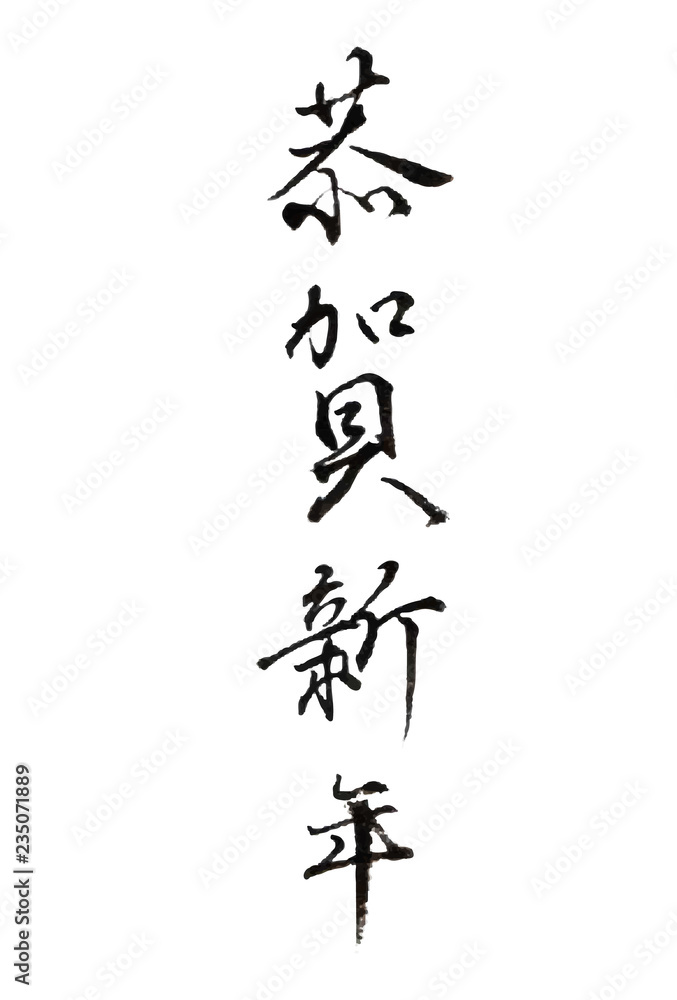 恭賀新年
Adobe Stock | #235071889